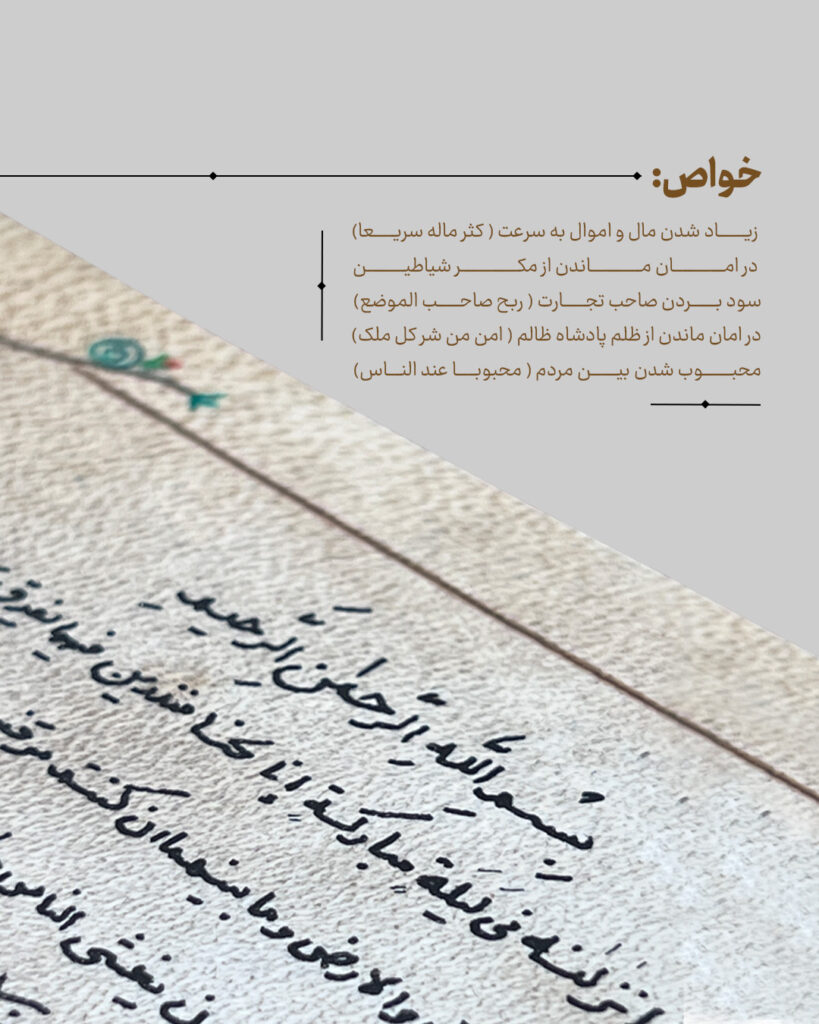 خواص:
زیاد شدن مال و اموال به سرعت ( کثر ماله سریعا)
در امان ماندن از مکر شیاطین
سود بردن صاحب تجارت ( ربح صاحب الموضع)
در امان ماندن از ظلم پادشاه ظالم ( امن من شر کل ملک)
محبوب شدن بین مردم ( محبوبا عند الناس)
بسم الله الرحمن الرحیم
انزلنه فی لیلة مبارکة انا کنا منذرین فیها یفرق
والارض وما بینهما ان کنتم
یغشی الناس